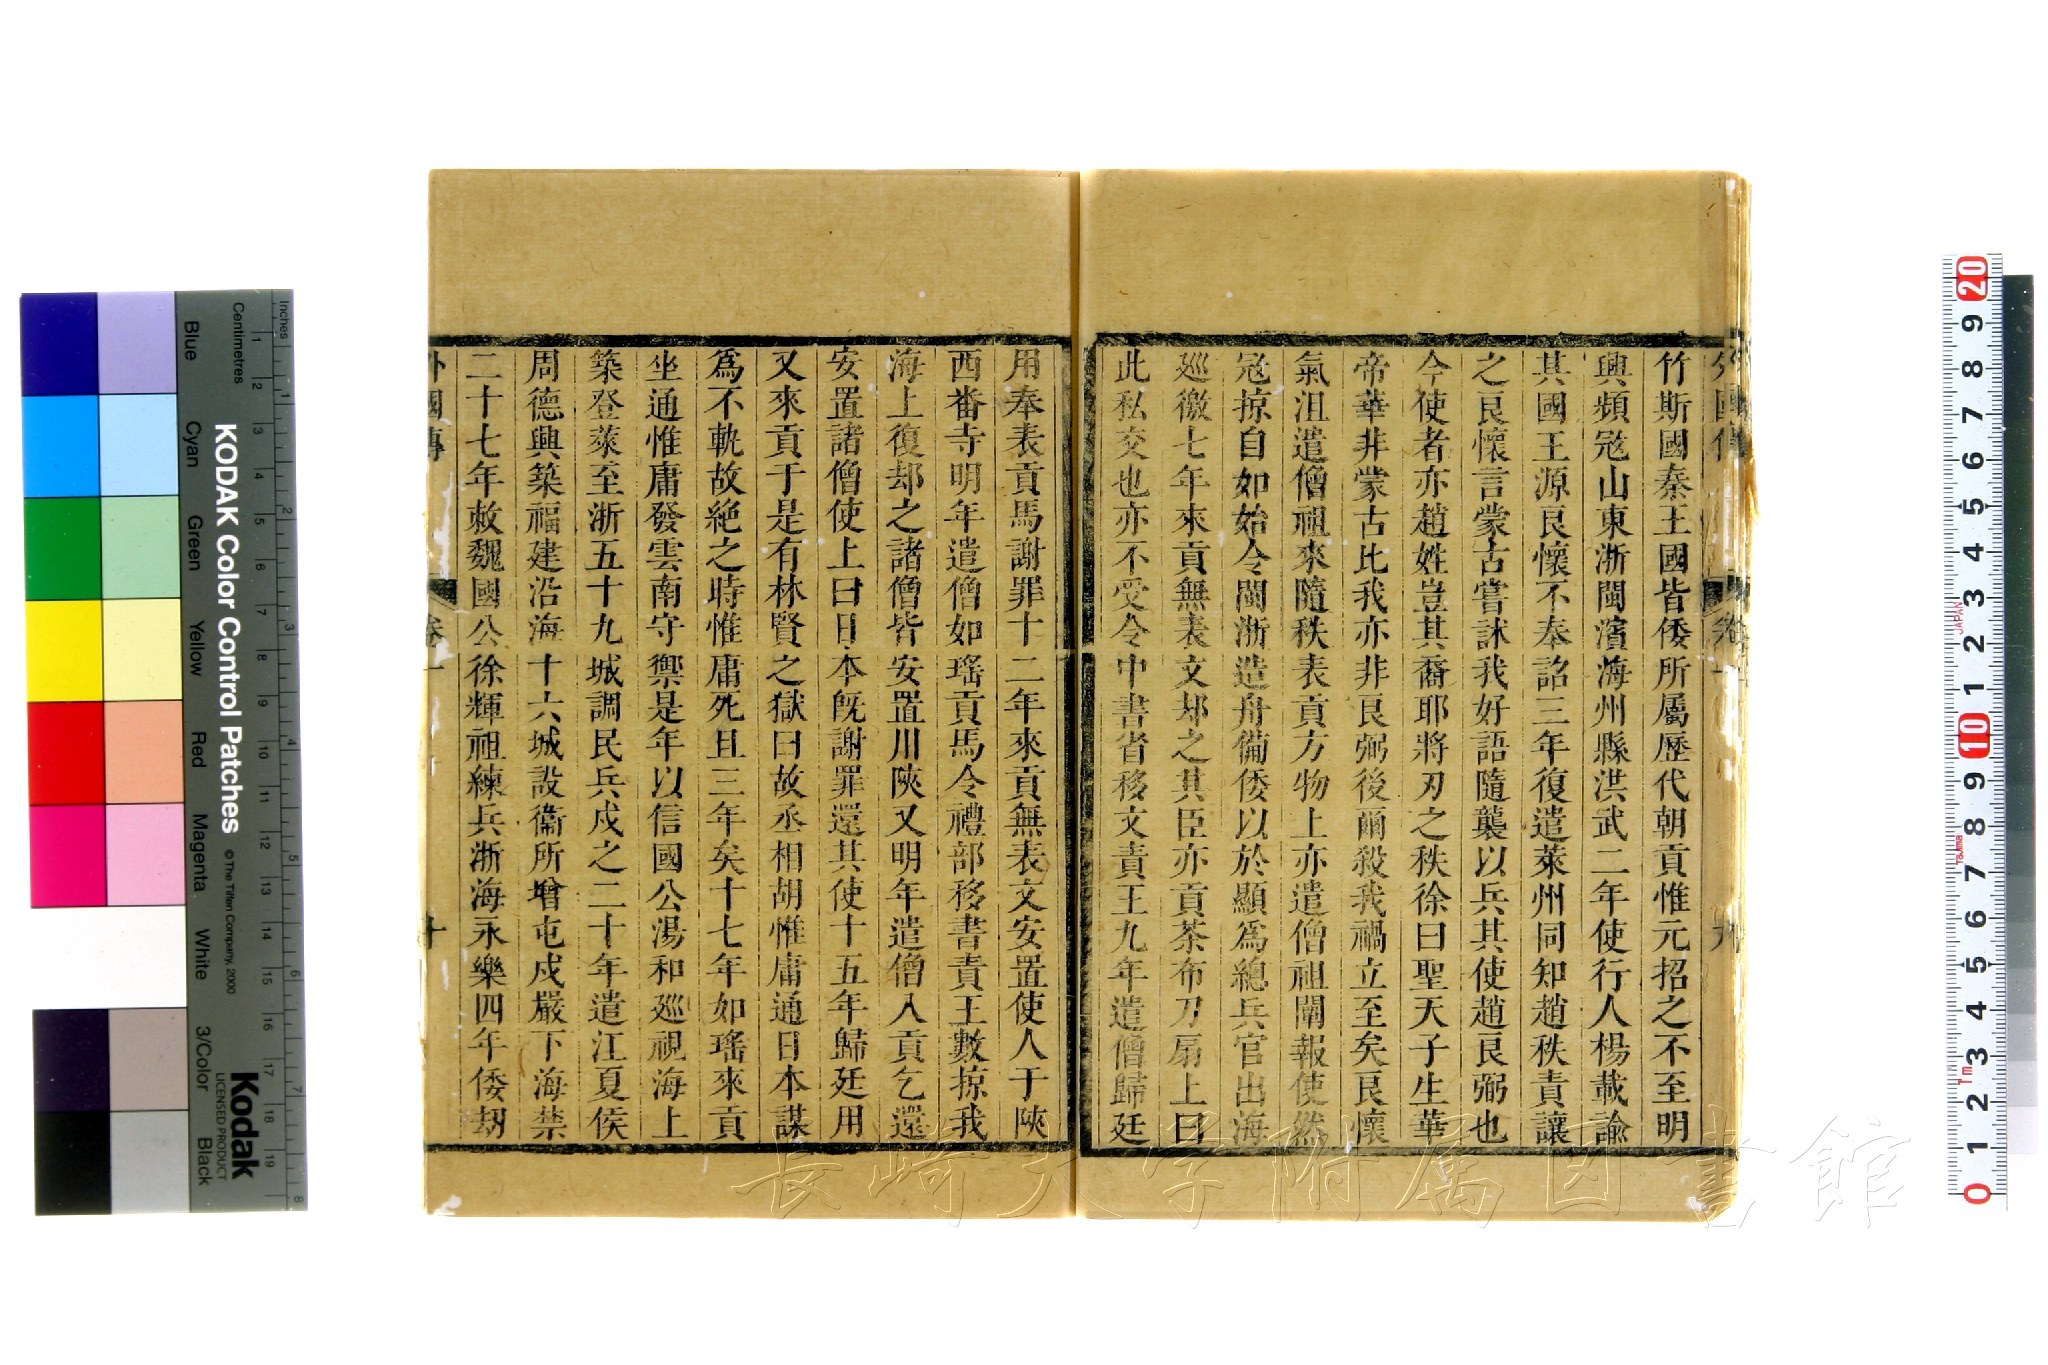 竹斯國秦王國皆倭所屬歷代朝貢惟元招之不至明
興頻冦山東浙閩濱海州縣洪武二年使行人楊載諭
其國王源良懷不奉詔三年復遣萊州同知趙秩責讓
之良懷言蒙古嘗訹我好語隨襲以兵其使趙良弼也
今使者亦趙姓豈其裔耶將刃之秩徐曰聖天子生華
帝華非蒙古比我亦非良弼後爾殺我禍立至矣良懷
氣沮遣僧祖來隨秩表貢方物上亦遣僧祖闡報使然
冦掠自如始令閩浙造舟備倭以於顯爲總兵官出海
廵徼七年來貢無表文却之其臣亦貢茶布刀扇上曰
此私交也亦不受令中書省移文責王九年遣僧歸廷
用奉表貢馬謝罪十二年來貢無表文安置使人于陝
西番寺明年遣僧如瑤貢馬令禮部移書責王數掠我
海上復却之諸僧皆安置川陝又明年遣僧入貢乞還
安置諸僧使上曰日本既謝罪還其使十五年歸廷用
又來貢于是有林賢之獄曰故丞相胡惟庸通日本謀
爲不軌故絕之時惟庸死且三年矣十七年如瑤來貢
坐通惟庸發雲南守禦是年以信國公湯和廵視海上
築登萊至浙五十九城調民兵戍之二十年遣江夏侯
周德興築福建沿海十六城設衞所增屯戍嚴下海禁
二十七年敕魏國公徐輝祖練兵浙海永樂四年倭刼
外國傳 卷一 十
外國傳 卷一 九
長崎大学附属図書館
KODAK Color Control Patches
© The Tiffen Company, 2000
Kodak
LICENSED PRODUCT
Inches
Centimetres
Blue
Cyan
Green
Yellow
Red
Magenta
White
3/Color
Black
JAPAN
Tajima
1m